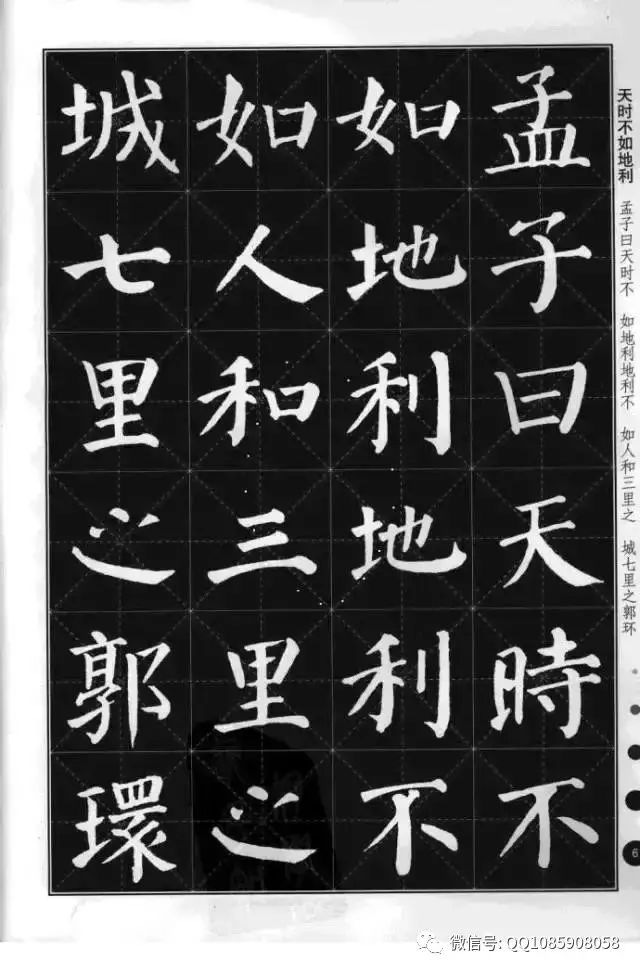 孟子曰天時不
如地利地利不
如人和三里之
城七里之郭環
天时不如地利
孟子曰天时不 如地利地利不 如人和三里之 城七里之郭环
6
微信号: QQ1085908058